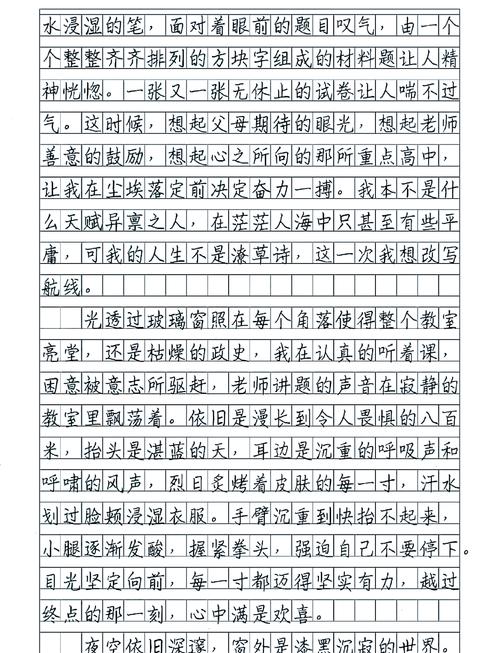 水浸湿的笔，面对着眼前的题目叹气，由一个
个整整齐齐排列的方块字组成的材料题让人精
神恍惚。一张又一张无休止的试卷让人喘不过
气。这时候，想起父母期待的眼光，想起老师
善意的鼓励，想起心之所向的那所重点高中，
让我在尘埃落定前决定奋力一搏。我本不是什
么天赋异禀之人，在茫茫人海中只甚至有些平
庸，可我的人生不是潦草诗，这一次我想改写
航线。
光透过玻璃窗照在每个角落使得整个教室
亮堂，还是枯燥的政史，我在认真的听着课，
困意被意志所驱赶，老师讲题的声音在寂静的
教室里飘荡着。依旧是漫长到令人畏惧的八百
米，抬头是湛蓝的天，耳边是沉重的呼吸声和
呼啸的风声，烈日炙烤着皮肤的每一寸，汗水
划过脸颊浸湿衣服。手臂沉重到快抬不起来，
小腿逐渐发酸，握紧拳头，强迫自己不要停下。
目光坚定向前，每一寸都迈得坚实有力，越过
终点的那一刻，心中满是欢喜。
夜空依旧深邃，窗外是漆黑沉寂的世界。